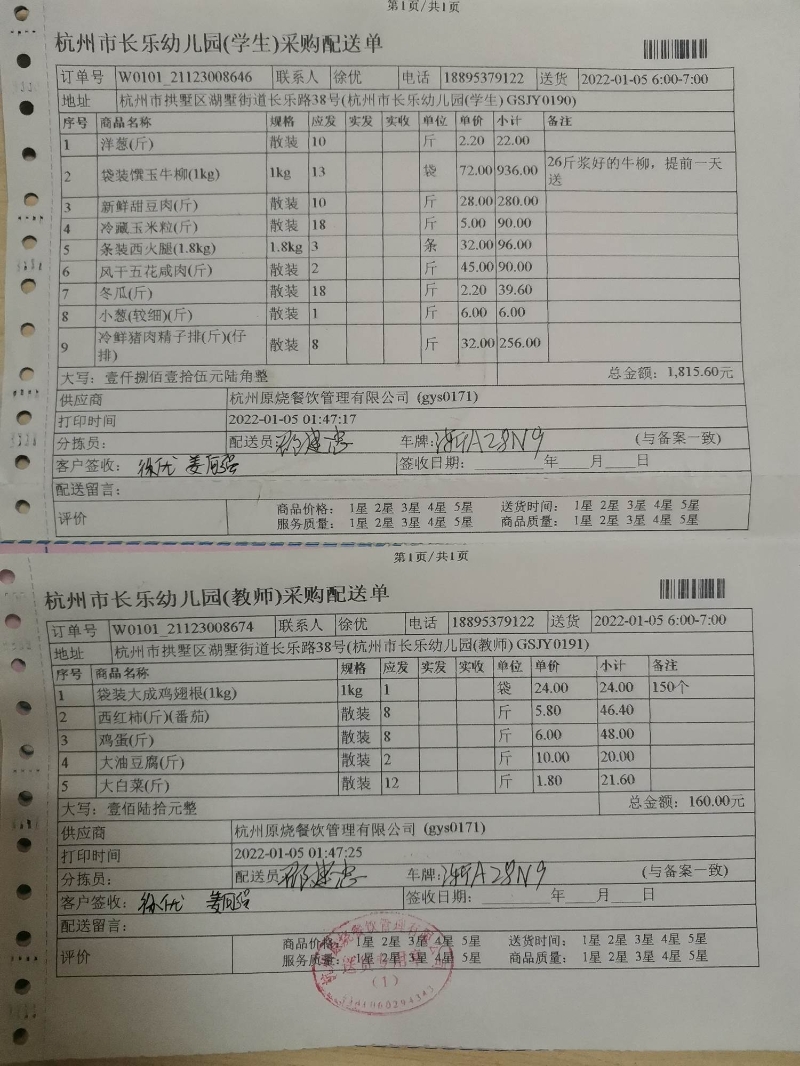 第1页/共1页
杭州市长乐幼儿园(学生)采购配送单
订单号 W0101_21123008646 联系人 徐优 电话 18895379122 送货 2022-01-05 6:00-7:00
地址 杭州市拱墅区湖墅街道长乐路38号(杭州市长乐幼儿园(学生) GSJY0190)
序号 商品名称 规格 应发 实发 实收 单位 单价 小计 备注
1 洋葱(斤) 散装 10 斤 2.20 22.00
2 袋装馔玉牛柳(1kg) 1kg 13 袋 72.00 936.00 26斤浆好的牛柳，提前一天送
3 新鲜甜豆肉(斤) 散装 10 斤 28.00 280.00
4 冷藏玉米粒(斤) 散装 18 斤 5.00 90.00
5 条装西火腿(1.8kg) 1.8kg 3 条 32.00 96.00
6 风干五花咸肉(斤) 散装 2 斤 45.00 90.00
7 冬瓜(斤) 散装 18 斤 2.20 39.60
8 小葱(较细)(斤) 散装 1 斤 6.00 6.00
9 冷鲜猪肉精子排(斤)(仔排) 散装 8 斤 32.00 256.00
大写：壹仟捌佰壹拾伍元陆角整 总金额：1,815.60元
供应商 杭州原烧餐饮管理有限公司 (gys0171)
打印时间 2022-01-05 01:47:17
分拣员： 配送员 车牌:浙A28N9 (与备案一致)
客户签收： 徐优 签收日期： 年 月 日
配送留言：
评价 商品价格： 1星 2星 3星 4星 5星 送货时间： 1星 2星 3星 4星 5星
服务质量： 1星 2星 3星 4星 5星 商品质量： 1星 2星 3星 4星 5星
第1页/共1页
杭州市长乐幼儿园(教师)采购配送单
订单号 W0101_21123008674 联系人 徐优 电话 18895379122 送货 2022-01-05 6:00-7:00
地址 杭州市拱墅区湖墅街道长乐路38号(杭州市长乐幼儿园(教师) GSJY0191)
序号 商品名称 规格 应发 实发 实收 单位 单价 小计 备注
1 袋装大成鸡翅根(1kg) 1kg 1 袋 24.00 24.00 150个
2 西红柿(斤)(番茄) 散装 8 斤 5.80 46.40
3 鸡蛋(斤) 散装 8 斤 6.00 48.00
4 大油豆腐(斤) 散装 2 斤 10.00 20.00
5 大白菜(斤) 散装 12 斤 1.80 21.60
大写：壹佰陆拾元整 总金额：160.00元
供应商 杭州原烧餐饮管理有限公司 (gys0171)
打印时间 2022-01-05 01:47:25
分拣员： 配送员 车牌:浙A28N9 (与备案一致)
客户签收： 徐优 签收日期： 年 月 日
配送留言：
评价 商品价格： 1星 2星 3星 4星 5星 送货时间： 1星 2星 3星 4星 5星
服务质量： 1星 2星 3星 4星 5星 商品质量： 1星 2星 3星 4星 5星
(1)